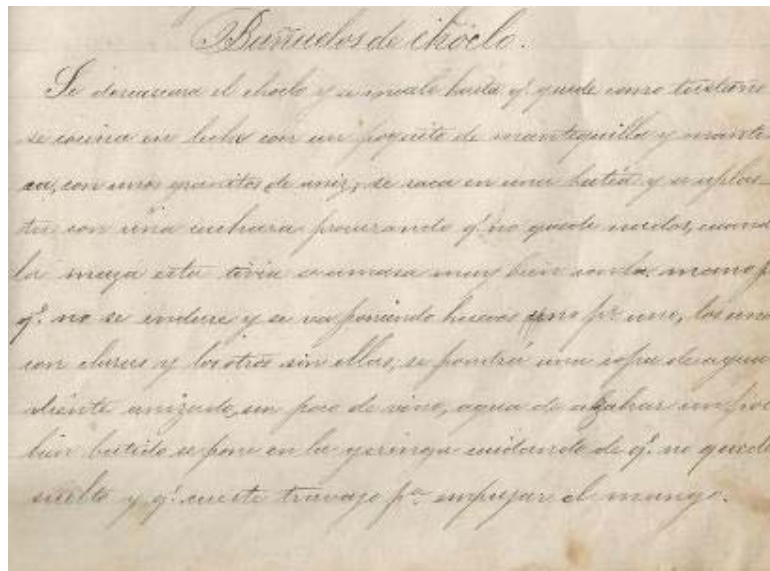 Buñuelos de choclo.
Se descascara el choclo y se muele hasta q.e quede como
se cocina en leche con un poquito de mantequilla y mante
ca, con unos granitos de aniz, se saca en una batéa y se aplas-
ta con una cuchara procurando q.e no quede nudos, cuand
la maza esta tivia se amasa muy bien con la mano p
q.e no se endure y se va poniendo huevos uno p.r uno, los uno
con claras y los otros sin ellas, se pondrá una copa de agua
diente anizado, un poco de vino, agua de azahar un poc
bien batido se pone en la geringa cuidando de q.e no quede
suelto y q.e cueste travajo p.a empujar el mango.